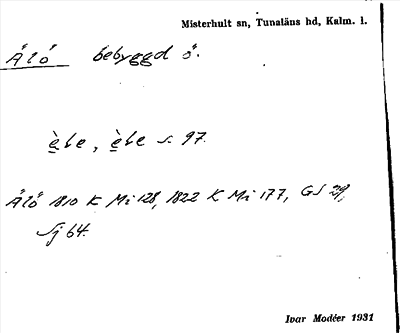 Misterhult sn, Tunaläns hd, Kalm. l.
Ålö bebyggd ö.
s. 97.
Ålö 1810 K Mi 128, 1822 K Mi 177, GS 29,
Sj 64.
Ivar Modéer 1931